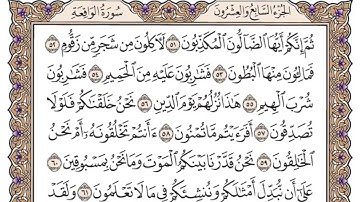 سُورَةُ الوَاقِعَةِ
الجُزءُ السَّابِعُ وَالعِشرُونَ
ثُمَّ إِنَّكُمْ أَيُّهَا الضَّالُّونَ الْمُكَذِّبُونَ ٥١ لَآكِلُونَ مِن شَجَرٍ مِّن زَقُّومٍ ٥٢
فَمَالِـُٔونَ مِنْهَا الْبُطُونَ ٥٣ فَشَارِبُونَ عَلَيْهِ مِنَ الْحَمِيمِ ٥٤ فَشَارِبُونَ
شُرْبَ الْهِيمِ ٥٥ هَٰذَا نُزُلُهُمْ يَوْمَ الدِّينِ ٥٦ نَحْنُ خَلَقْنَاكُمْ فَلَوْلَا
تُصَدِّقُونَ ٥٧ أَفَرَءَيْتُم مَّا تُمْنُونَ ٥٨ ءَأَنتُمْ تَخْلُقُونَهُ أَمْ نَحْنُ
الْخَالِقُونَ ٥٩ نَحْنُ قَدَّرْنَا بَيْنَكُمُ الْمَوْتَ وَمَا نَحْنُ بِمَسْبُوقِينَ ٦٠
عَلَىٰ أَن نُّبَدِّلَ أَمْثَالَكُمْ وَنُنشِئَكُمْ فِي مَا لَا تَعْلَمُونَ ٦١ وَلَقَدْ